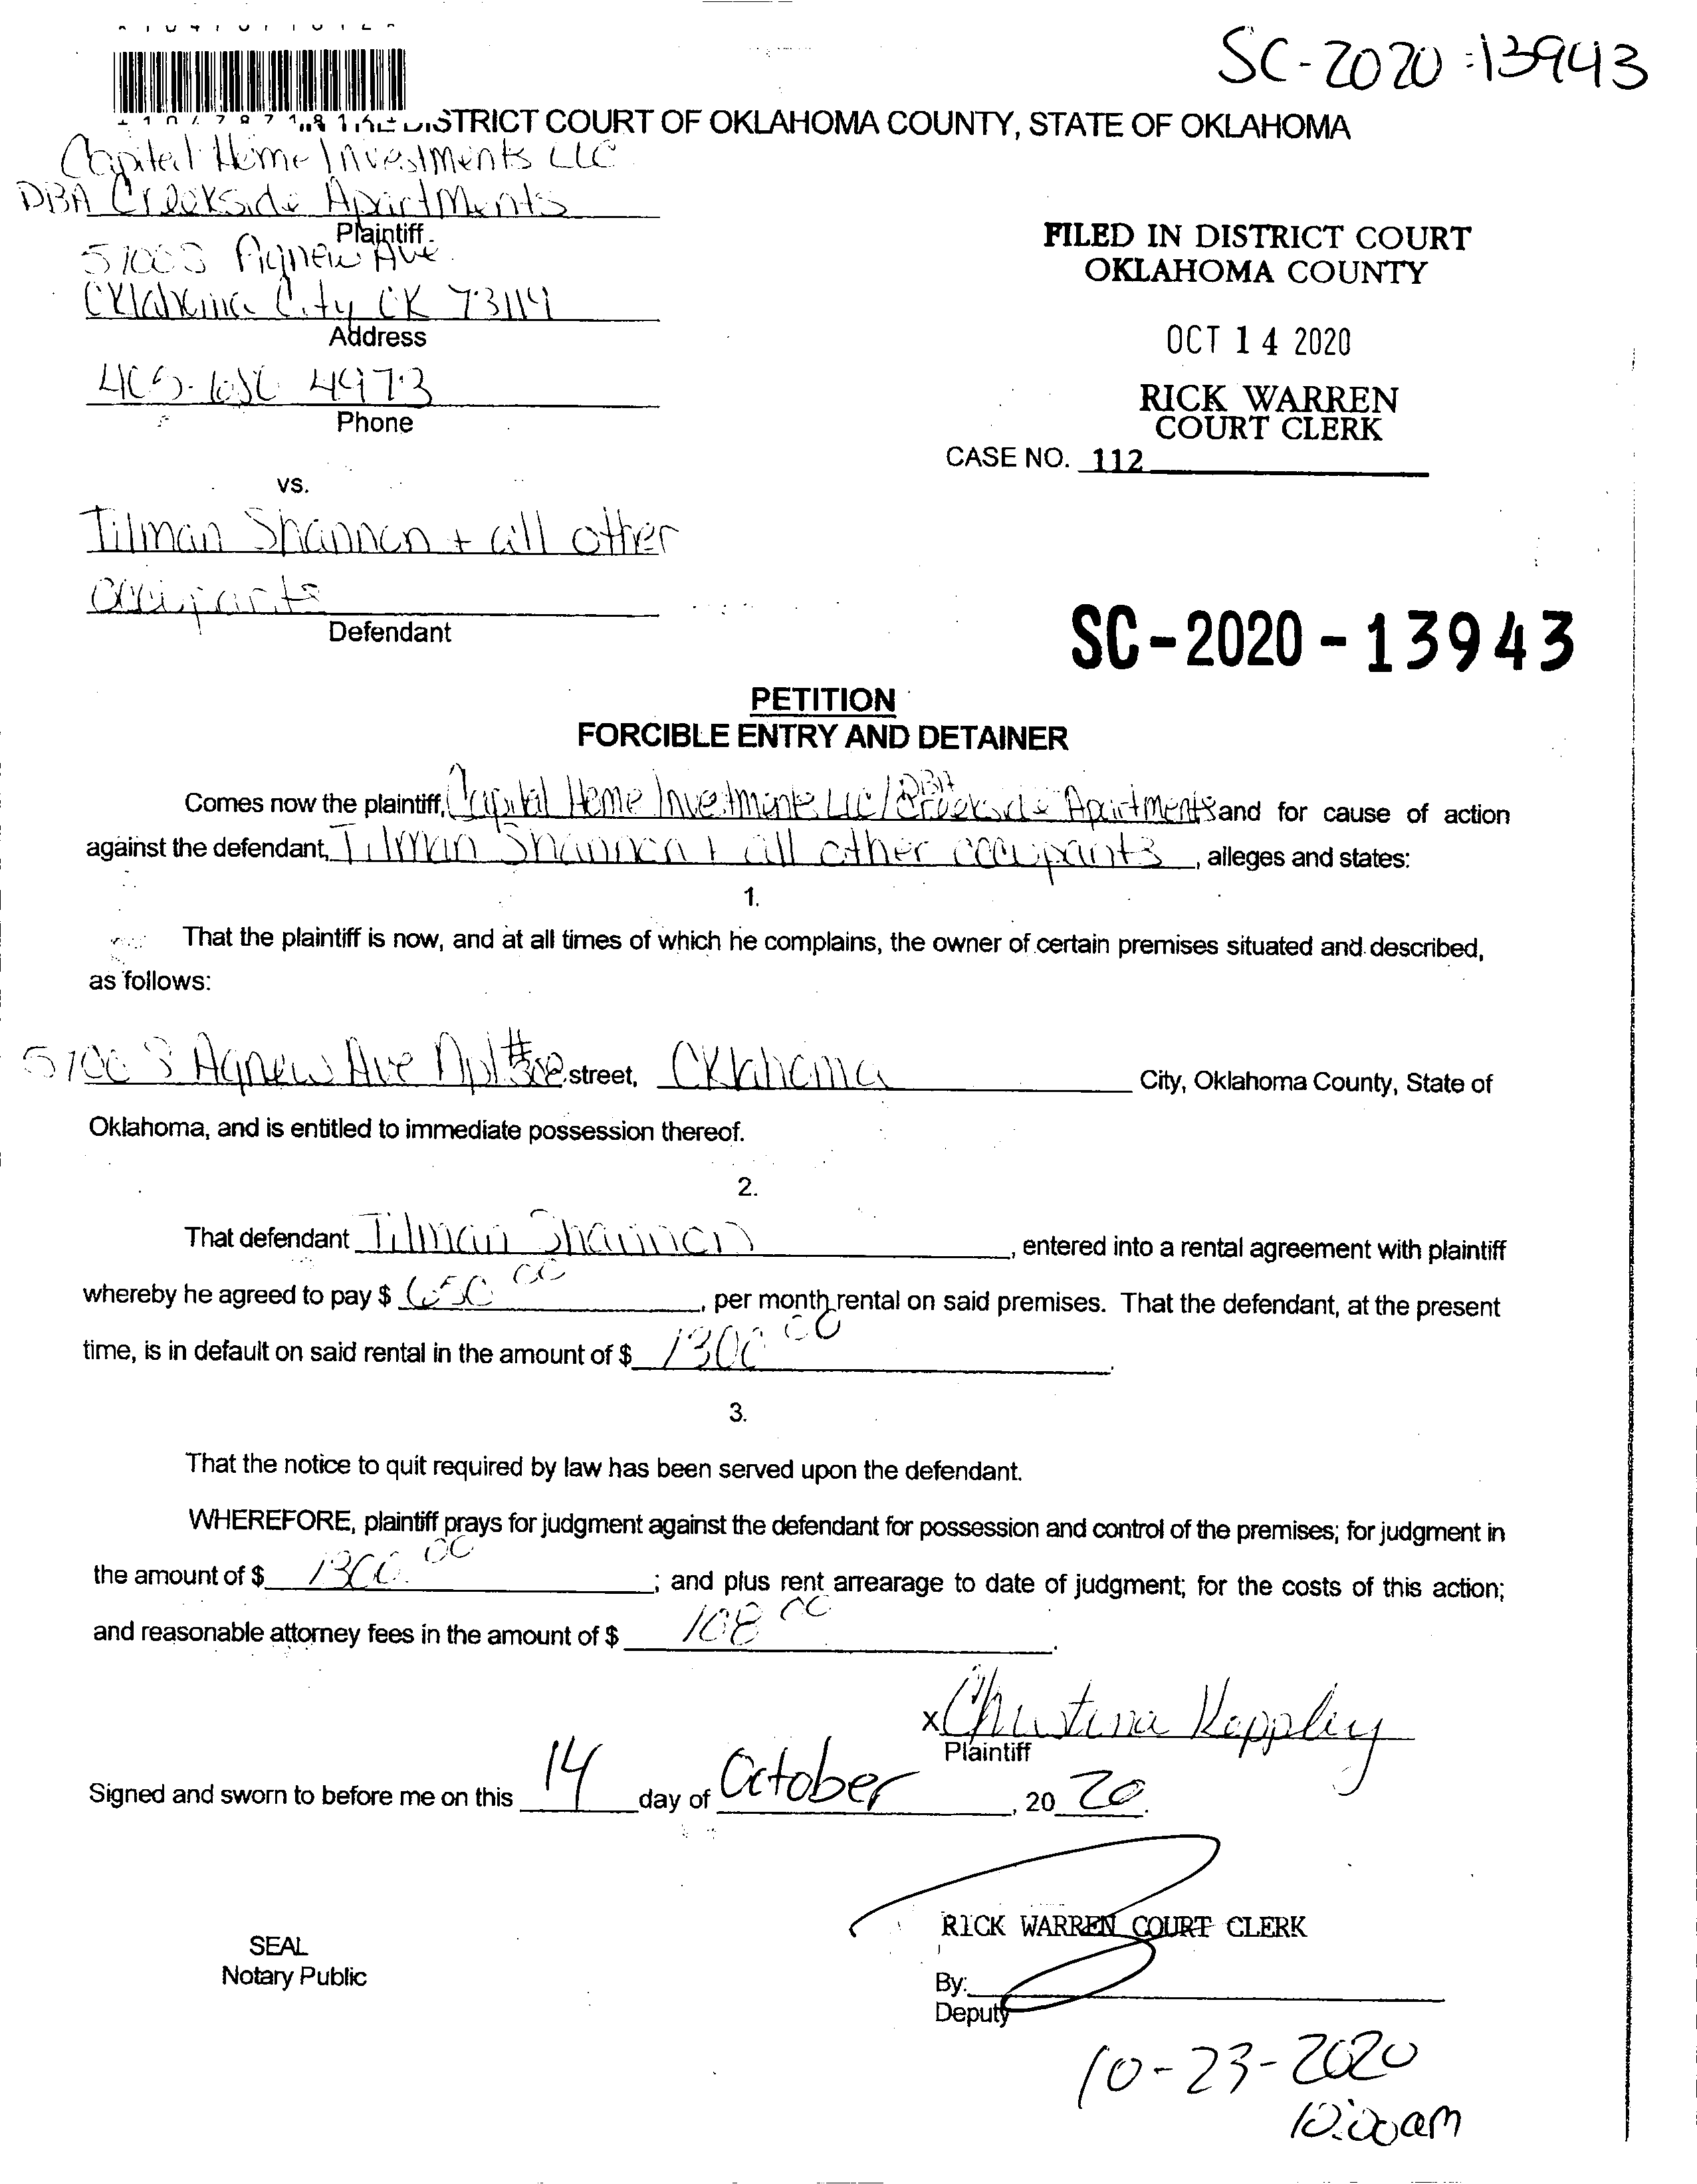 SC-2020-13943
DISTRICT COURT OF OKLAHOMA COUNTY, STATE OF OKLAHOMA
Capital Home Investments LLC
DBA Creekside Apartments
Plaintiff
5100 S Agnew Ave
Oklahoma City OK 73119
Address
FILED IN DISTRICT COURT
OKLAHOMA COUNTY
OCT 14 2020
RICK WARREN
COURT CLERK
405-650 4973
Phone
CASE NO. 112
vs.
Tilman Shannon + all other
occupants
Defendant
SC-2020-13943
PETITION
FORCIBLE ENTRY AND DETAINER
Comes now the plaintiff, Capital Home Investments LLC/DBA Creekside Apartments and for cause of action
against the defendant, Tilman Shannon + all other occupants, alleges and states:
1.
That the plaintiff is now, and at all times of which he complains, the owner of certain premises situated and described,
as follows:
5100 S Agnew Ave Apt # street, Oklahoma City, Oklahoma County, State of
Oklahoma, and is entitled to immediate possession thereof.
2.
That defendant Tilman Shannon, entered into a rental agreement with plaintiff
whereby he agreed to pay $ 650 00, per month rental on said premises. That the defendant, at the present
time, is in default on said rental in the amount of $ 1300 00.
3.
That the notice to quit required by law has been served upon the defendant.
WHEREFORE, plaintiff prays for judgment against the defendant for possession and control of the premises; for judgment in
the amount of $ 1300. 00; and plus rent arrearage to date of judgment; for the costs of this action;
and reasonable attorney fees in the amount of $ 108 00.
x Christina Keppley
Plaintiff
Signed and sworn to before me on this 14 day of October, 20 20.
RICK WARREN COURT CLERK
SEAL
Notary Public
By:
Deputy
10-23-2020
10:00am